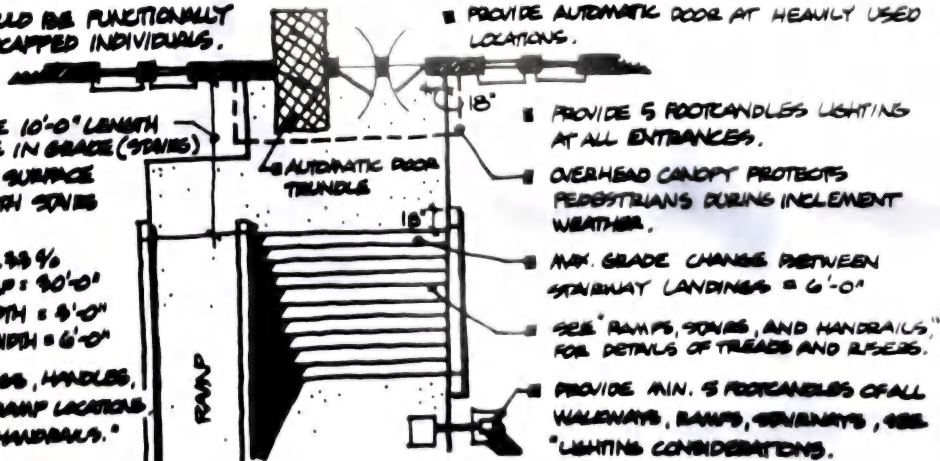 FUNCTIONALLY
INDIVIDUALS.
10'-0" LENGTH
IN GRADE (STAIRS)
SURFACE
STAIRS
33 %
= 30'-0"
= 3'-0"
= 6'-0"
, HANDLES,
RAMP LOCATIONS
HANDRAILS."
AUTOMATIC DOOR
TRUNDLE
RAMP
18"
18"
PROVIDE AUTOMATIC DOOR AT HEAVILY USED
LOCATIONS.
PROVIDE 5 FOOTCANDLES LIGHTING
AT ALL ENTRANCES.
OVERHEAD CANOPY PROTECTS
PEDESTRIANS DURING INCLEMENT
WEATHER.
MAX. GRADE CHANGE BETWEEN
STAIRWAY LANDINGS = 6'-0"
SEE "RAMPS, STAIRS, AND HANDRAILS,"
FOR DETAILS OF TREADS AND RISERS.
PROVIDE MIN. 5 FOOTCANDLES OF ALL
WALKWAYS, RAMPS, STAIRWAYS, SEE
"LIGHTING CONSIDERATIONS.